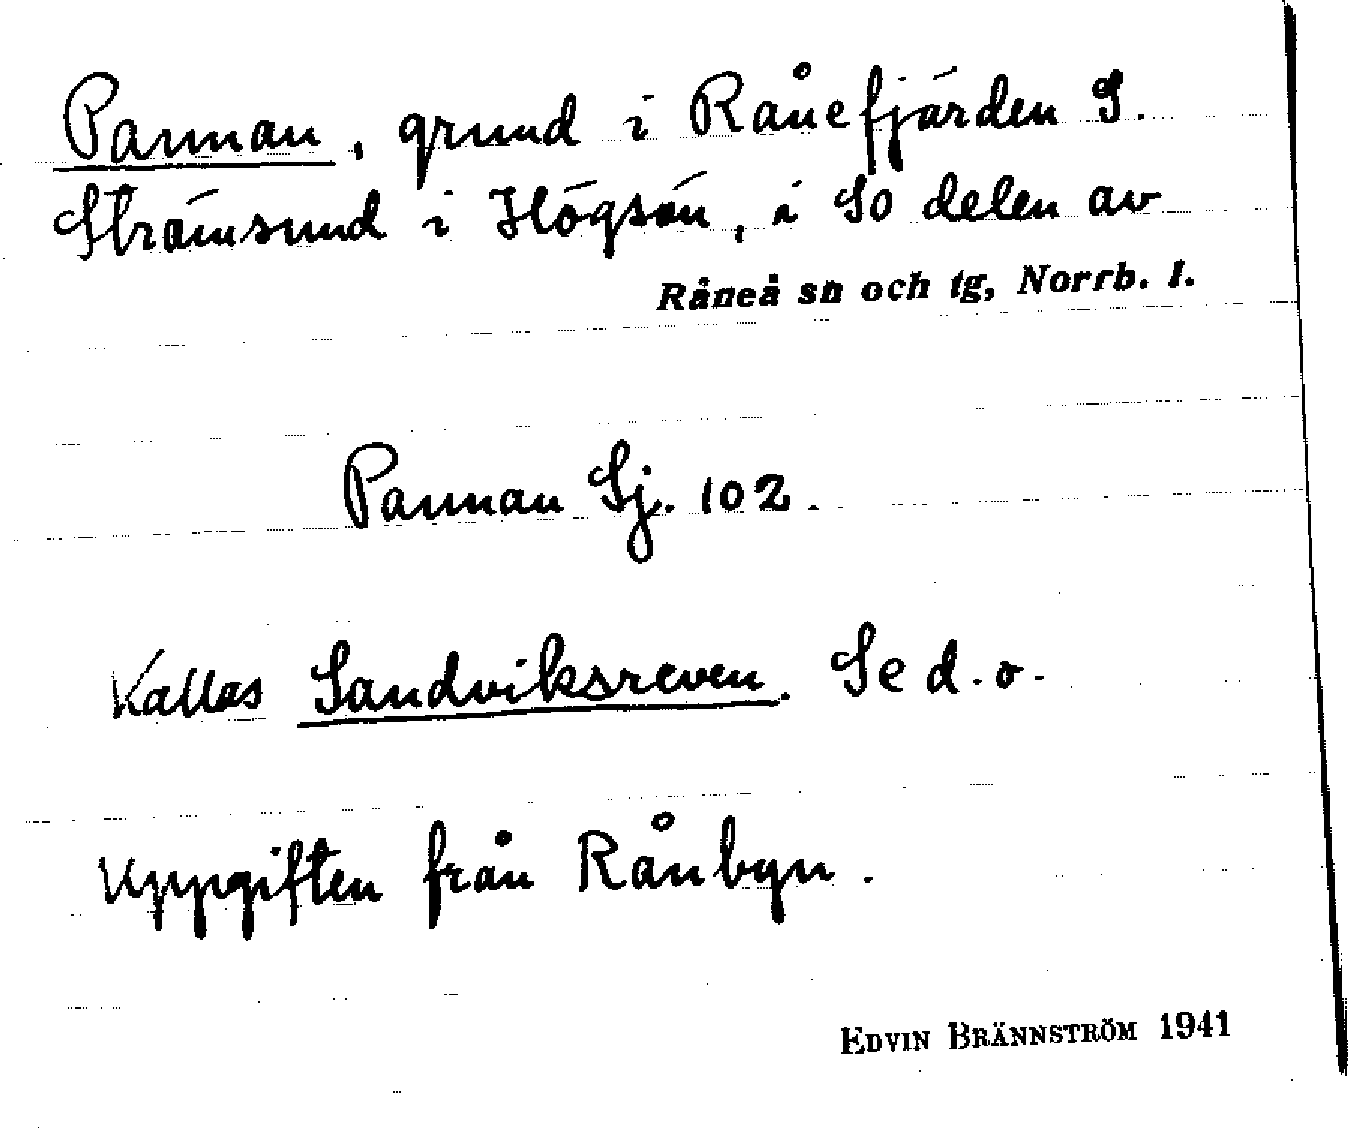 Pannan, grund i Rånefjärden S.
Strömsund i Högsön, i SO delen av
Råneå sn och tg, Norrb. l.
Pannan Sj. 102.
Kallas Sandviksreven. Se d. o.
Uppgiften från Rånbyn.
EDVIN BRÄNNSTRÖM 1941